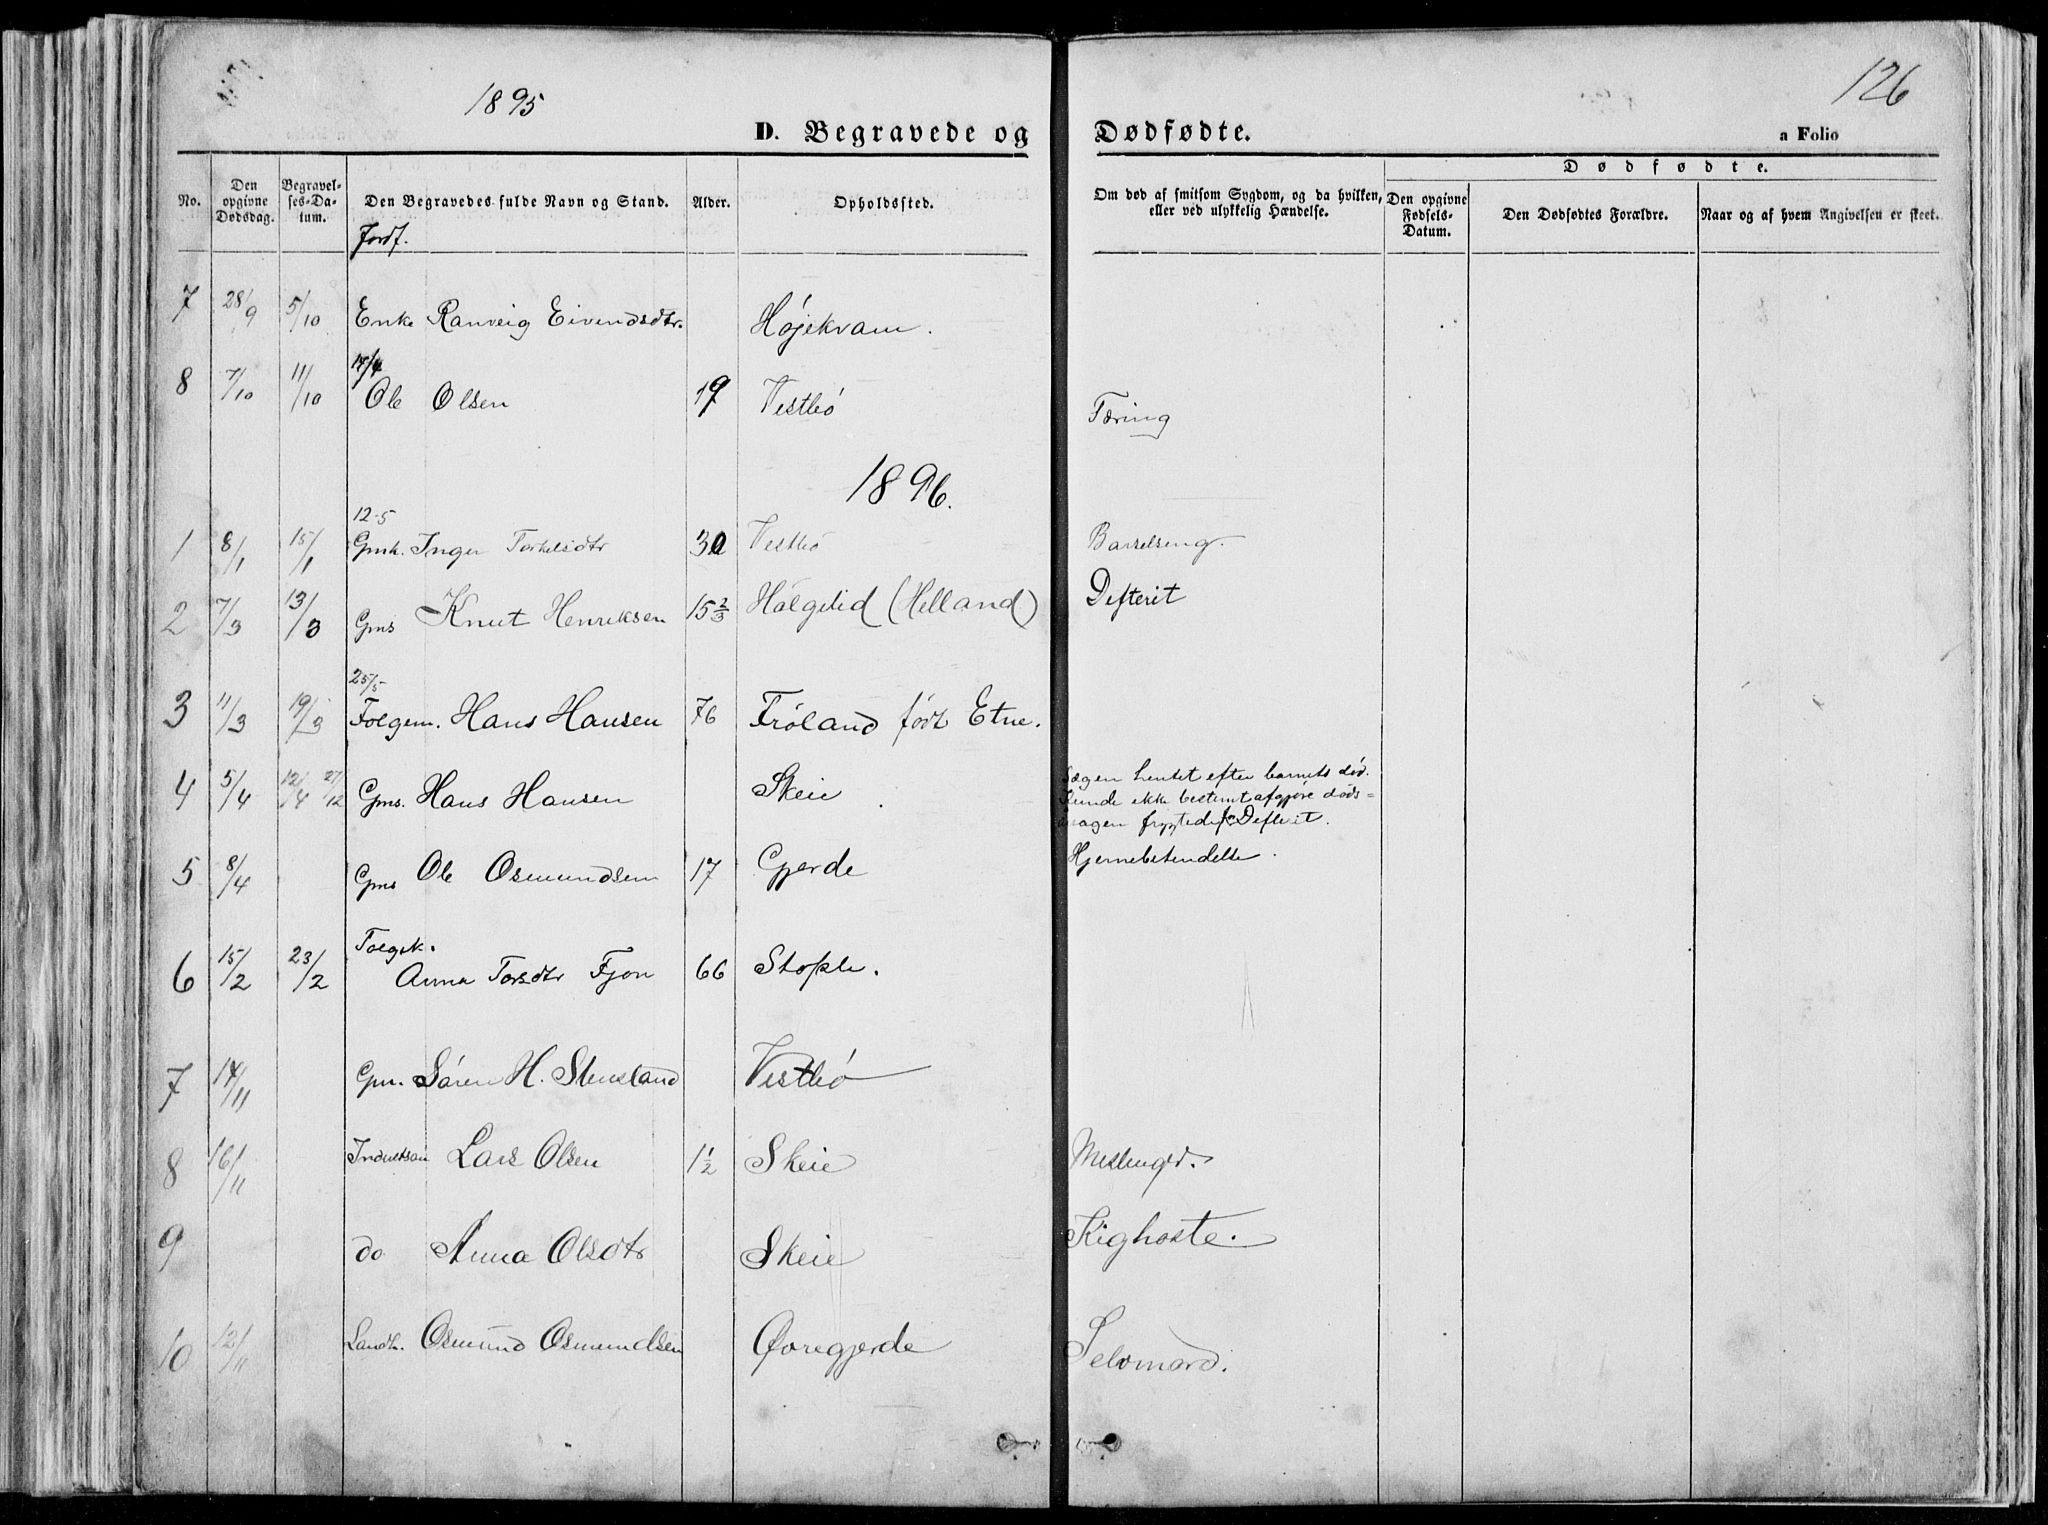 1895
126
D. Begravede og Dødfødte.
a Folio
No.
Den opgivne Dødsdag.
Begravelses-Datum.
Den Begravedes fulde Navn og Stand.
Alder.
Opholdssted.
Om død af smitsom Sygdom, og da hvilken, eller ved ulykkelig Hændelse.
Dødfødte.
Den opgivne Fødsels-Datum.
Den Dødfødtes Forældre.
Naar og af hvem Angivelsen er skeet.
7 28/9 5/10 Enke Ranveig Eivendsdtr. Højekvam.
8 7/10 11/10 Ole Olsen 19 Vestbø Tæring
1896.
12-5
1 8/1 15/1 Gmk. Inger Torkelsdtr 30 Vestbø Barselseng.
2 7/3 13/3 Gms Knut Henriksen 15 2/3 Hålgelid (Helland) Defterit
25/5
3 11/3 19/3 Folgem. Hans Hansen 76 Frøland født Etne.
4 5/4 12/4 27/12 Gms. Hans Hansen Skeie Lægen hentet efter barnets død.
Kunde ikke bestemt afgjøre døds=
årsagen frygtede Defterit.
5 8/4 Gms Ole Osmundsen 17 Gjerde Hjernebetendelse.
Folgek.
6 15/2 23/2 Anna Torsdtr Fjon 66 Stople.
7 14/11 Gm. Søren H. Stensland Vestbø
8 16/11 Lars Olsen 1 1/2 Skeie Meslinger.
9 do Anna Olsdtr Skeie Kighoste.
10 12/11 Landh. Osmund Osmundsen Øvregjerde Selvmord.